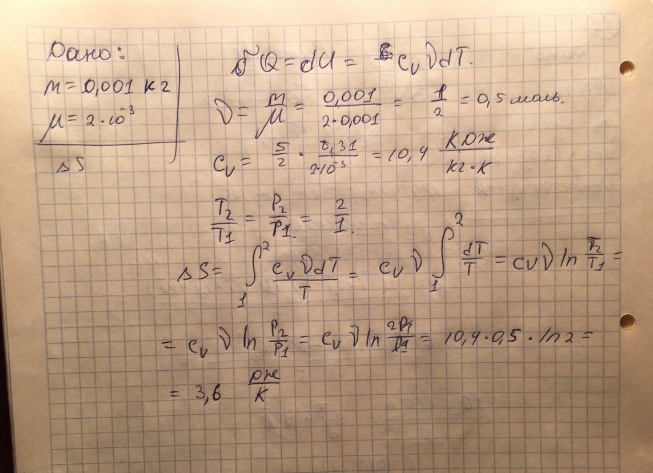 Дано:
m = 0,001 кг
μ = 2·10⁻³
ΔS
δQ = dU = c_v ν dT.
ν = m/μ = 0,001/(2·0,001) = 1/2 = 0,5 моль.
c_v = 5/2 · 8,31/(2·10⁻³) = 10,4 КДж/(кг·К)
T₂/T₁ = P₂/P₁ = 2/1.
ΔS = ∫₁² (c_v ν dT)/T = c_v ν ∫₁² dT/T = c_v ν ln T₂/T₁ =
= c_v ν ln P₂/P₁ = c_v ν ln 2P₁/P₁ = 10,4·0,5·ln2 =
= 3,6 Дж/К